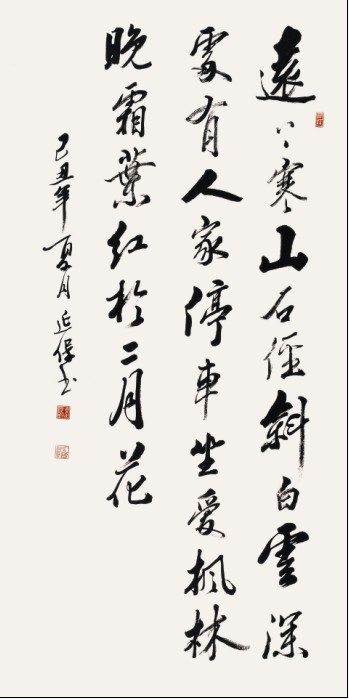 遠上寒山石徑斜白雲深
處有人家停車坐愛楓林
晚霜葉紅於二月花
己丑年夏月延保书